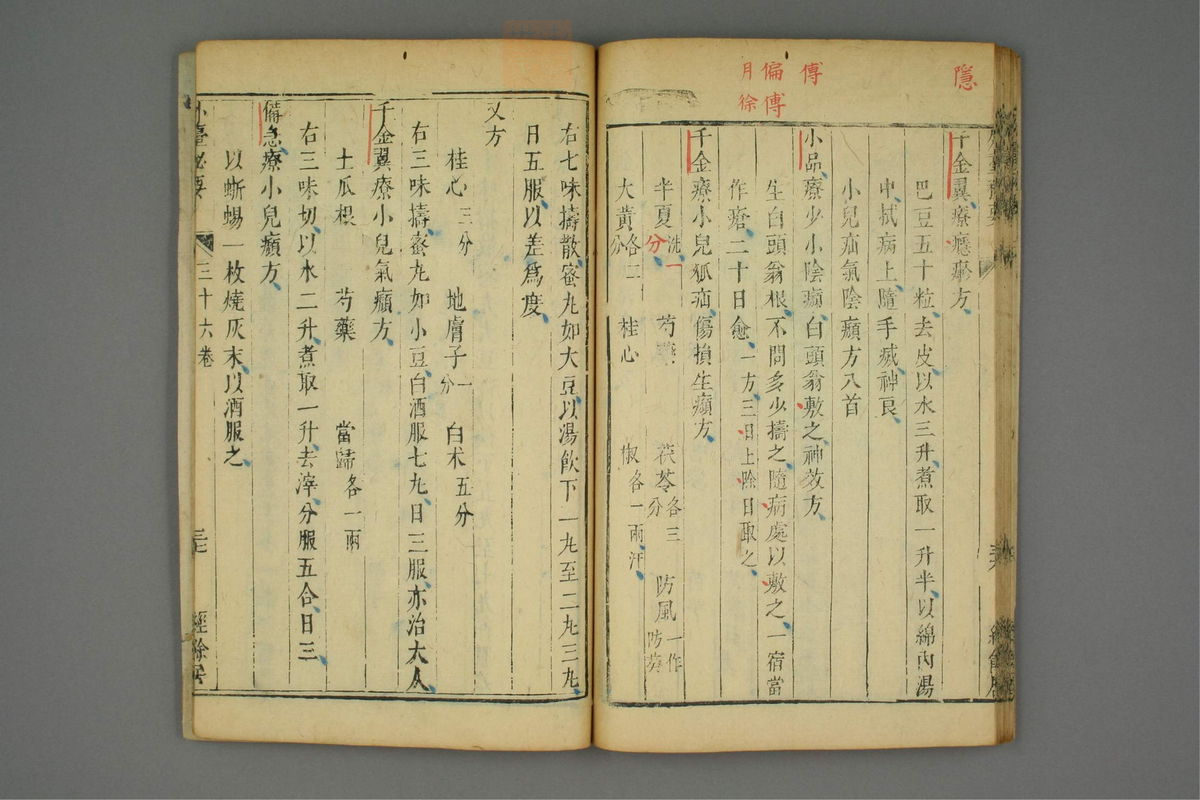 隱
傅
偏傅
月徐
千金翼療癮疹方
巴豆五十粒去皮以水三升煮取一升半以綿內湯
中拭病上隨手滅神良
小兒疝氣陰㿗方八首
小品療少小陰㿗白頭翁敷之神效方
生白頭翁根不問多少擣之隨病處以敷之一宿當
作瘡二十日愈一方三日上除日取之
千金療小兒狐疝傷損生㿗方
半夏洗一分 芍藥 茯苓各三分 防風一作防葵
大黃各二分 桂心 椒各一兩汗
右七味擣散蜜丸如大豆以湯飲下一丸至二丸三丸
日五服以差爲度
又方
桂心三分 地膚子一分 白朮五分
右三味擣蜜丸如小豆白酒服七丸日三服亦治大人
千金翼療小兒氣㿗方
土瓜根 芍藥 當歸各一兩
右三味切以水二升煮取一升去滓分服五合日三
備急療小兒㿗方
以蜥蜴一枚燒灰末以酒服之
外臺秘要 三十六卷 三七 經餘居